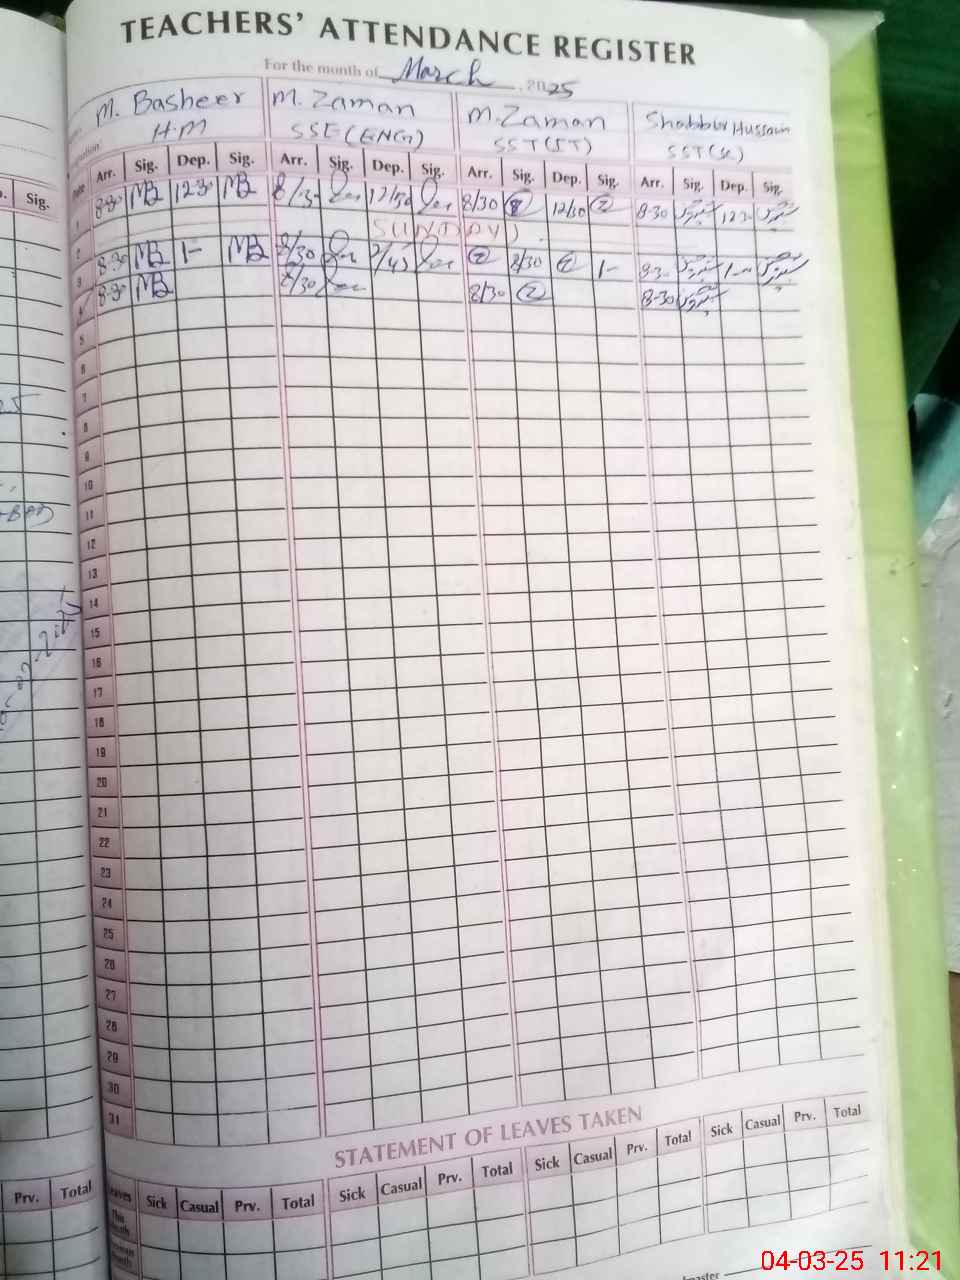 TEACHERS' ATTENDANCE REGISTER
For the month of March, 2025
M. Basheer M. Zaman M. Zaman Shabbir Hussain
H.M SSE (ENG) SST (IT) SST (Sc)
Date Arr. Sig. Dep. Sig. Arr. Sig. Dep. Sig. Arr. Sig. Dep. Sig. Arr. Sig. Dep. Sig.
1 8-30 MB 12-30 MB 8/30 12/30 8/30 12/30 8-30 شبیر 12-30 شبیر
2 SUNDAY
3 8-30 MB 1- MB 8/30 8/30 1- 8-30 شبیر 1- شبیر
4 8-30 MB 8/30 8/30 8-30 شبیر
5
6
7
8
9
10
11
12
13
14
15
16
17
18
19
20
21
22
23
24
25
26
27
28
29
30
31
STATEMENT OF LEAVES TAKEN
Leaves Sick Casual Prv. Total Sick Casual Prv. Total Sick Casual Prv. Total Sick Casual Prv. Total
This Month
Sig.
Prv. Total
04-03-25 11:21